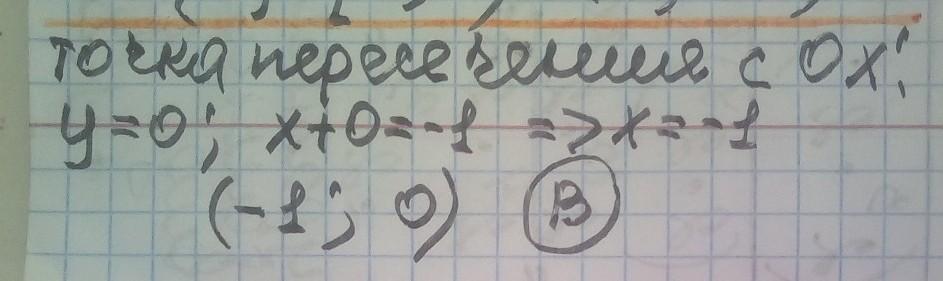 точка пересечения с Ox:
y=0; x+0=-1 => x=-1
(-1; 0) B